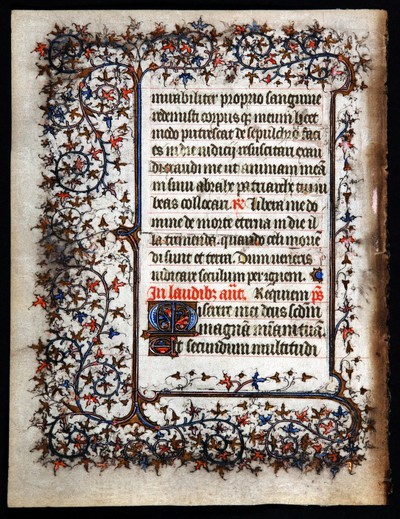 mirabiliter proprio sanguine
redemisti corpus q̄ meum licet
modo putrescat de sepulchro faci
es in die iudicii resuscitari exau
di exaudi me ut animam meā
in sinu abrahe patriarche tui iu
beas collocari. R̄ Libera me do
mine de morte eterna in die il
la tremenda. quando celi mouē
di sunt et terra. Dum veneris
iudicare seculum per ignem.
In laudibꝫ añt. Requiem p̄s
Miserere mei deus scdm
magnā miām tuā.
Et secundum multitudi